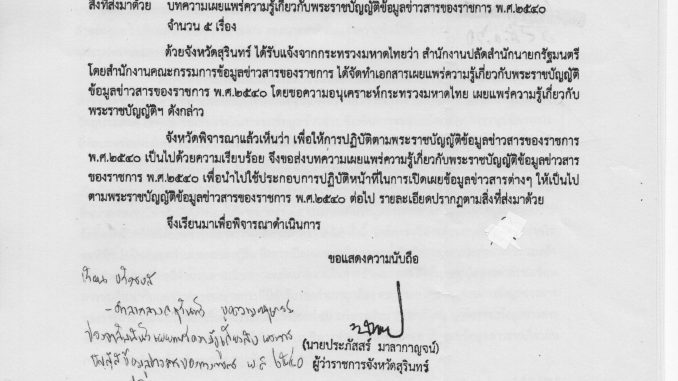 สิ่งที่ส่งมาด้วย บทความเผยแพร่ความรู้เกี่ยวกับพระราชบัญญัติข้อมูลข่าวสารของราชการ พ.ศ.๒๕๔๐
จำนวน ๕ เรื่อง
ด้วยจังหวัดสุรินทร์ ได้รับแจ้งจากกระทรวงมหาดไทยว่า สำนักงานปลัดสำนักนายกรัฐมนตรี
โดยสำนักงานคณะกรรมการข้อมูลข่าวสารของราชการ ได้จัดทำเอกสารเผยแพร่ความรู้เกี่ยวกับพระราชบัญญัติ
ข้อมูลข่าวสารของราชการ พ.ศ.๒๕๔๐ โดยขอความอนุเคราะห์กระทรวงมหาดไทย เผยแพร่ความรู้เกี่ยวกับ
พระราชบัญญัติฯ ดังกล่าว
จังหวัดพิจารณาแล้วเห็นว่า เพื่อให้การปฏิบัติตามพระราชบัญญัติข้อมูลข่าวสารของราชการ
พ.ศ.๒๕๔๐ เป็นไปด้วยความเรียบร้อย จึงขอส่งบทความเผยแพร่ความรู้เกี่ยวกับพระราชบัญญัติข้อมูลข่าวสาร
ของราชการ พ.ศ.๒๕๔๐ เพื่อนำไปใช้ประกอบการปฏิบัติหน้าที่ในการเปิดเผยข้อมูลข่าวสารต่างๆ ให้เป็นไป
ตามพระราชบัญญัติข้อมูลข่าวสารของราชการ พ.ศ.๒๕๔๐ ต่อไป รายละเอียดปรากฏตามสิ่งที่ส่งมาด้วย
จึงเรียนมาเพื่อพิจารณาดำเนินการ
ขอแสดงความนับถือ
เรียน
(นายประภัสสร์ มาลากาญจน์)
ผู้ว่าราชการจังหวัดสุรินทร์
พ.ศ. ๒๕๔๐